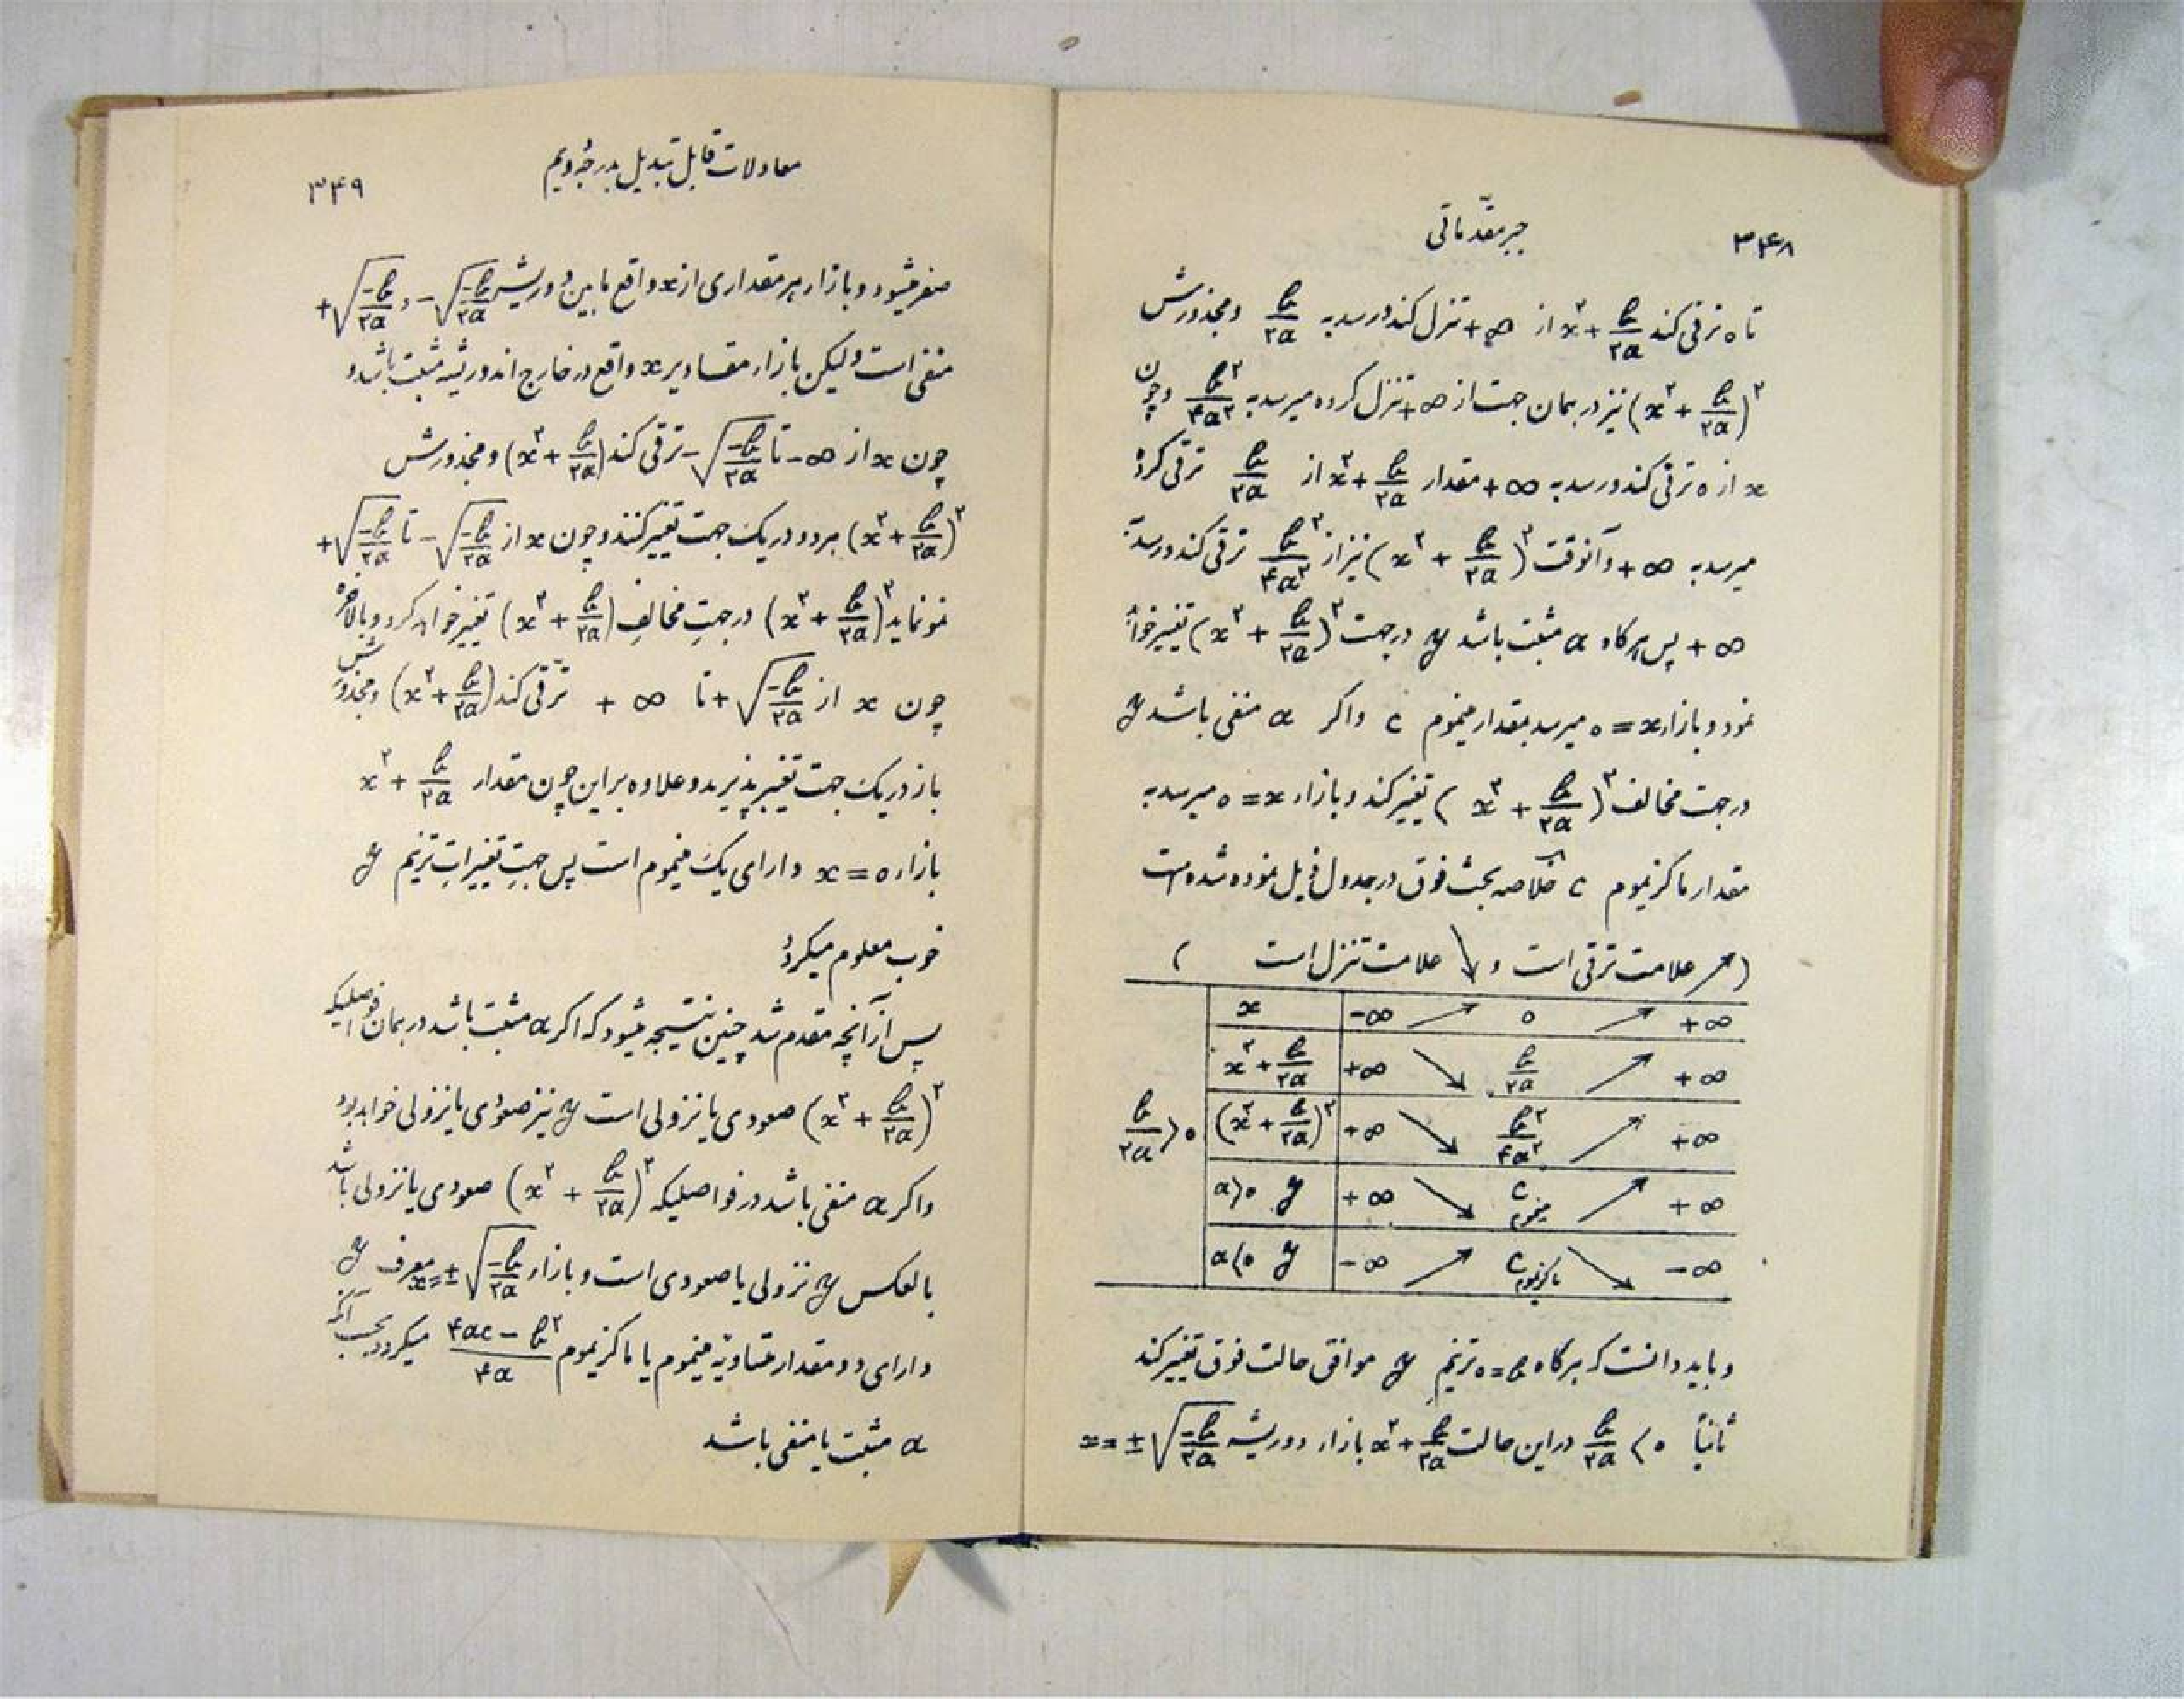 ۳۴۸
جبر مقدّماتی
تا ۰ ترقی کند x۲ + b/۲a از ∞+ تنزل کند و رسد به b/۲a و مجذورش
(x۲ + b/۲a)۲ نیز در همان جهت از ∞+ تنزل کرده میرسد به b۲/۴a۲ و چون
x از ۰ ترقی کند و رسد به ∞+ مقدار x۲ + b/۲a از b/۲a ترقی کرده
میرسد به ∞+ و آنوقت (x۲ + b/۲a)۲ نیز از b۲/۴a۲ ترقی کند و رسد به
∞+ پس هرگاه a مثبت باشد y در جهت (x۲ + b/۲a)۲ تغییر خواهد
نمود و بازاء x=۰ میرسد بمقدار مینموم c و اگر a منفی باشد y
در جهت مخالف (x۲ + b/۲a)۲ تغییر کند و بازاء x=۰ میرسد به
مقدار ماکزیموم c خلاصه بحث فوق در جدول ذیل نموده شده است
(↗ علامت ترقی است و ↘ علامت تنزل است)
x | -∞ ↗ ۰ ↗ +∞
x۲ + b/۲a | +∞ ↘ b/۲a ↗ +∞
b/۲a > ۰ | (x۲ + b/۲a)۲ | +∞ ↘ b۲/۴a۲ ↗ +∞
a>۰ y | +∞ ↘ c مینموم ↗ +∞
a<۰ y | -∞ ↗ c ماکزیموم ↘ -∞
و باید دانست که هرگاه b=۰ ترینم y موافق حالت فوق تغییر کند
ثانیاً b/۲a < ۰ در این حالت x۲ + b/۲a بازاء دو ریشه x = ±√(-b/۲a)
معادلات قابل تبدیل بدرجهٔ دویم
۳۴۹
صفر میشود و بازاء هر مقداری از x واقع مابین دو ریشه -√(-b/۲a) و +√(-b/۲a)
منفی است و لیکن بازاء مقادیر x واقع در خارج اندو ریشه مثبت باشد و
چون x از ∞- تا -√(-b/۲a) ترقی کند (x۲ + b/۲a) و مجذورش
(x۲ + b/۲a)۲ هر دو در یک جهت تغییر کنند و چون x از -√(-b/۲a) تا +√(-b/۲a)
نمو نماید (x۲ + b/۲a)۲ در جهتِ مخالفِ (x۲ + b/۲a) تغییر خواهد کرد و بالاخره
چون x از +√(-b/۲a) تا ∞ + ترقّی کند (x۲ + b/۲a) و مجذورش
باز در یک جهت تغییر پذیرید و علاوه بر این چون مقدار x۲ + b/۲a
بازاء x=۰ دارای یک مینموم است پس جهتِ تغییراتِ ترینم y
خوب معلوم میگردد
پس از آنچه مقدم شد چنین نتیجه میشود که اگر a مثبت باشد در همان فواصلیکه
(x۲ + b/۲a)۲ صعودی یا نزولی است y نیز صعودی یا نزولی خواهد بود
و اگر a منفی باشد در فواصلیکه (x۲ + b/۲a)۲ صعودی یا نزولی باشد
بالعکس y نزولی یا صعودی است و بازاء x=±√(-b/۲a) معرف y
دارای دو مقدار متساویهٔ مینموم یا ماکزیموم (۴ac - b۲)/۴a میگردد بحسب آنکه
a مثبت یا منفی باشد